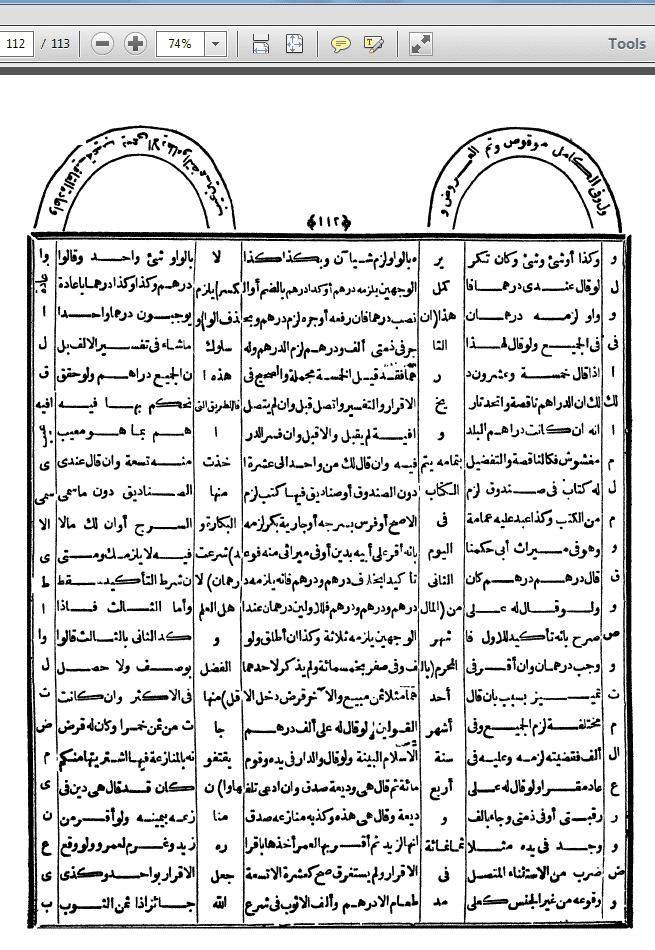 112 / 113 74% Tools
ولوفى الكامل موقوص وتم العروض و
﴿١١٢﴾
و وكذا أوشئ وشئ وكان تكر ير ه بالواو لزم شيا ن وبكذا كذا لا بالواو شئ واحد وقالوا وا
ل لوقال عندى درهما فا كمل الوجهين يلزمه درهم أوكذا درهم بالضم أوال كسر)يلزم درهم وكذا وكذا درهما باعادة عادة
و واو لزمه درهمان هذا(ان نصب درهما فان رفعه أوجره لزم درهم وبح ذف الوا)و يوجبون درهما واحدا ا
فى فى الجميع ولو قال لهذا الثا جر فى ذمتى ألف ودرهم لزم الدرهم وله سلوك ماشاء فى تفسير الالف بل ل
ا اذا قال خمسة وعشرون د ر هما فقد قيل الخمسة مجملة والصحيح فى هذه ا ن الجميع دراهم ولو حقق ق
لك لك ان الدراهم ناقصة واتحد تار يخ الاقرار والتفسير واتصل قبل وان لم يتصل فالطريق التى نحكم بها فيه افيه
ا انه ان كانت دراهم البلد و افية لم يقبل والاقبل وان فسر الدر ا هم بما هو معيب
م مغشوش فكالناقصة والتفضيل بتمامه يتم فيه وان قال لك من واحد الى عشرة ا خذت منه تسعة وان قال عندى ى
ل له كتاب فى صندوق لزم الكتاب دون الصندوق أوصناديق فيها كتب لزم منها الصناديق دون ماسمى سمى
م من الكتب وكذا عبد عليه عمامة فى الاصح أوفرس بسرجه أوجارية بكر لزمه البكارة و السرج أوان لك مالا الا
و وهو فى ميراث أبى حكمنا اليوم بانه أقر على أبيه بدين أوفى ميراثى منه فوعد د)شرعت فيه لا يلزمك ومتى ى
ق قال درهم درهم كان الثانى تأكيدا بخلاف درهم ودرهم فانه يلزمه د رهمان) لا ن شرط التأكيد سقط ط
و ولو قال له على من(المال درهم ودرهم ودرهم فللاولين درهمان عندا هل العلم وأما الثالث فاذا ا
ص صرح بانه تأكيد للاول فا شهر الوجهين يلزمه ثلاثة وكذا ان أطلق ولو و كد الثانى بالثالث قالوا وا
و وجب درهمان وان أقر فى المحرم(بال ف وفى صفر بخمسمائة ولم يذكر لاحدهما الفضل بوصف ولا حصل ل
ت تمييز بسبب بان قال أحد هما مثلا ثمن مبيع والآخر قرض دخل الا قل)منها فى الاكثر وان كانت ت
م مختلفة لزم الجميع وفى أشهر القولين لو قال له على ألف درهم جا ت من ثمن خمر ا وكان له قرض ض
ال ألف فقضيته لزمه وعليه فى سنة الاسلام البينة ولو قال والدار فى يده وقوم يقتفو نه بالمنازعة فيها اشتريتها منكم م
ع عاد مقرا ولو قال له على أربع مائة ثم قال هى وديعة صدق وان ادعى تلف هاوا) ن كان قد قال هى دين فى ى
ر رقبتى أوفى ذمتى وجاء بالف و ديعة وقال هى هذه وكذبه منازعه صدق منا زعه بيمينه ولو أقر من ن
و وجد فى يده مثلا ثمانمائة انها لزيد ثم أقر بها لعمر أخذها باقرا ره زيد وغرم لعمر و ولو وقع ع
ض ضرب من الاستثناء المتصل فى الاقرار ولم يستغرق صح كعشرة الاتسعة جعل الاقرار بواحد وكذى ى
و وقوعه من غير الجنس كعلى مد طعام الا درهم وألف الاثوب فى شرع الله جائز اذا ثمن الثوب ب